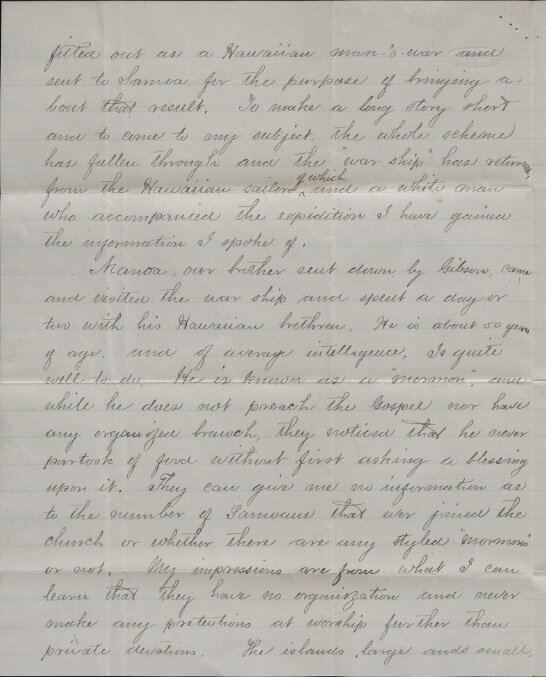 fitted out as a Hawaiian man-'o-war and
sent to Samoa for the purpose of bringing a-
bout that result. To make a long story short
and to come to my subject, the whole scheme
has fallen through and the "war ship" has returned
of which
from the Hawaiian sailors ^ and a white man
who accompanied the expidition I have gained
the information I spoke of.
Manoa, our brother sent down by Gibson, came
and visited the war ship and spent a day or
two with his Hawaiian brethren. He is about 50 years
of age, and of average intelligence. Is quite
well to do. He is known as a "Mormon", and
while he does not preach the Gospel nor have
any organized branch, they noticed that he never
partook of food without first asking a blessing
upon it. They can give me no information as
to the number of Samoans that ever joined the
church or whether there are any styled "Mormons"
or not. My impressions are from what I can
learn that they have no organization and never
make any pretentions at worship further than
private devotions. The islands, large and small,